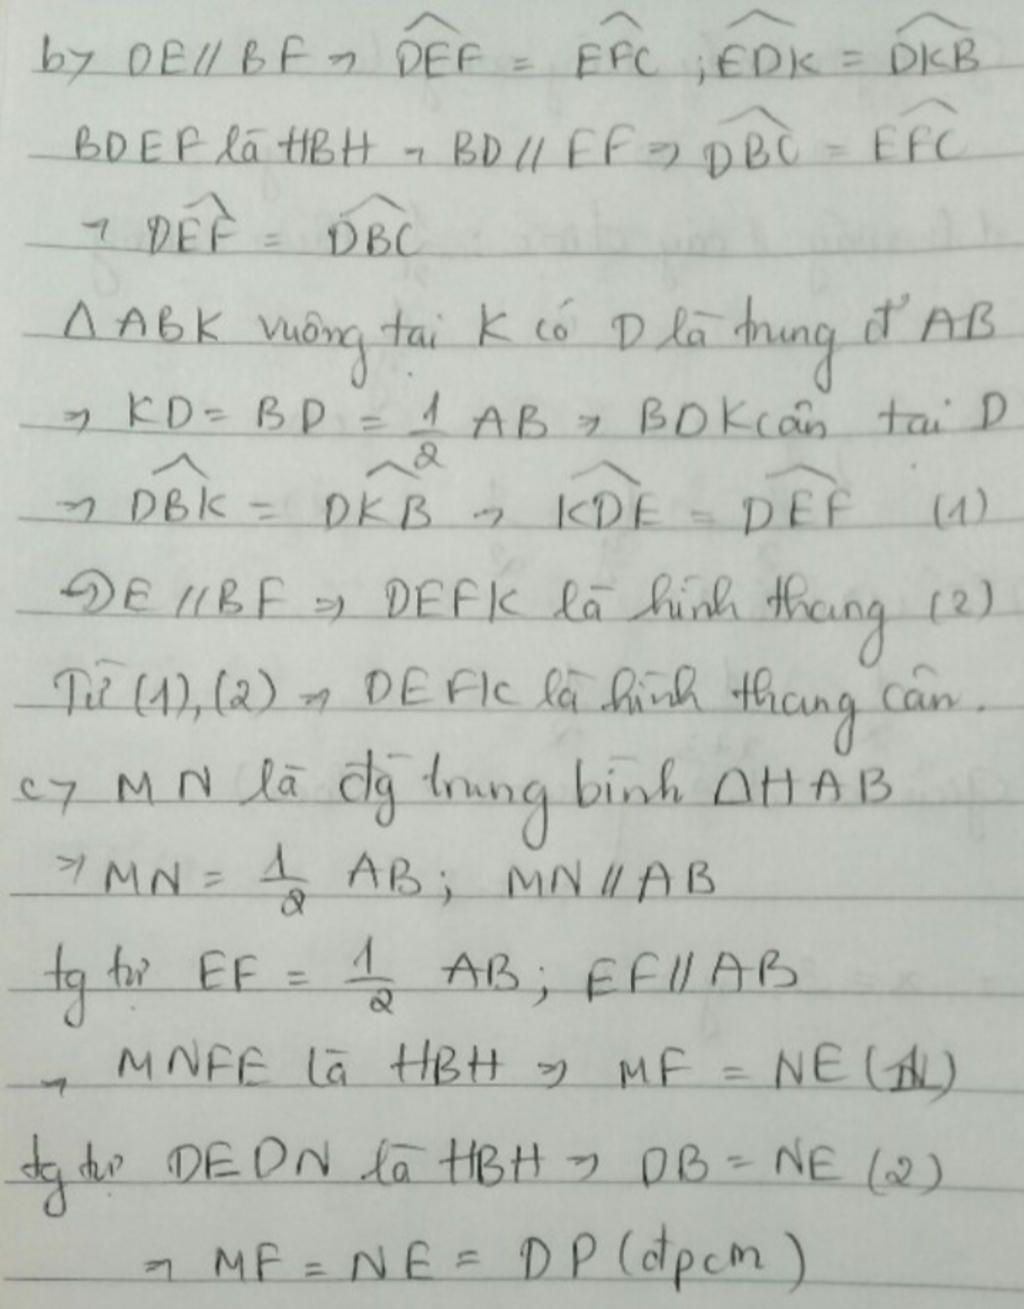 b, DE // BF → \widehat{DEF} = \widehat{EFC} ; \widehat{EDK} = \widehat{DKB}
BDEF là HBH → BD // EF ⇒ \widehat{DBC} = \widehat{EFC}
→ \widehat{DEF} = \widehat{DBC}
Δ ABK vuông tại K có D là trung đ' AB
⇒ KD = BD = \frac{1}{2} AB ⇒ BDK cân tại D
⇒ \widehat{DBK} = \widehat{DKB} → \widehat{KDE} = \widehat{DEF} (1)
DE // BF ⇒ DEFK là hình thang (2)
Từ (1), (2) → DEFK là hình thang cân.
c, MN là đg trung bình ΔHAB
⇒ MN = \frac{1}{2} AB ; MN // AB
tg tự EF = \frac{1}{2} AB ; EF // AB
→ MNFE là HBH ⇒ MF = NE (1)
tg tự DEDN là HBH ⇒ DB = NE (2)
→ MF = NE = DP (đpcm)